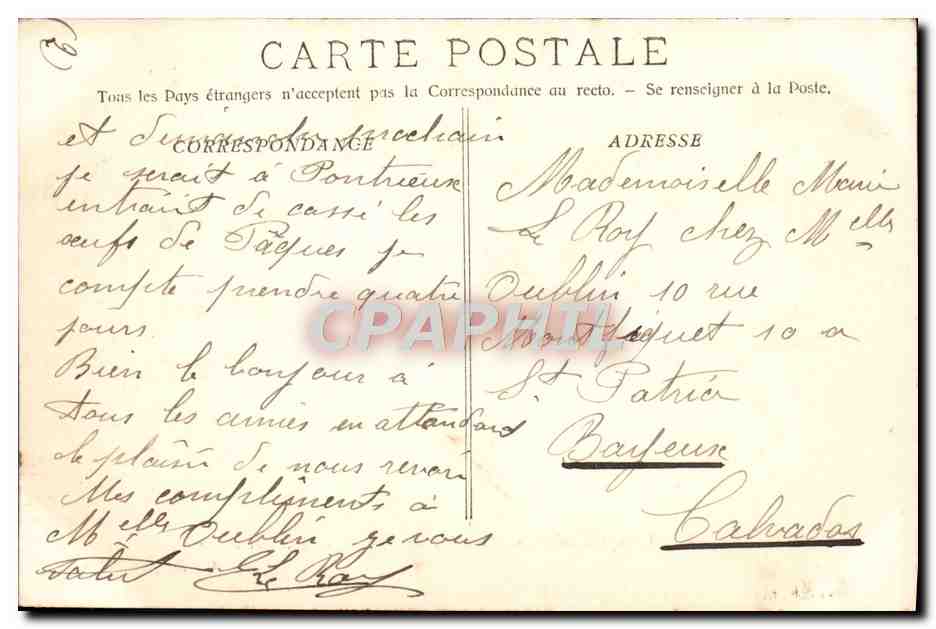 CARTE POSTALE
Tous les Pays étrangers n'acceptent pas la Correspondance au recto. — Se renseigner à la Poste.
CORRESPONDANCE
et dimanche prochain
je serait à Pontrieux
entraint de cassé les
œufs de Pâques je
compte prendre quatre
jours.
Bien le bonjour à
tous les amies en attendant
le plaisir de nous revoir
Mes compliments à
Melle Oublin je vous
salut Le Roy
ADRESSE
Mademoiselle Marie
Le Roy chez Melles
Oublin 10 rue
Montfiquet 10 a
St. Patrice
Bayeux
Calvados
CPAPHIL